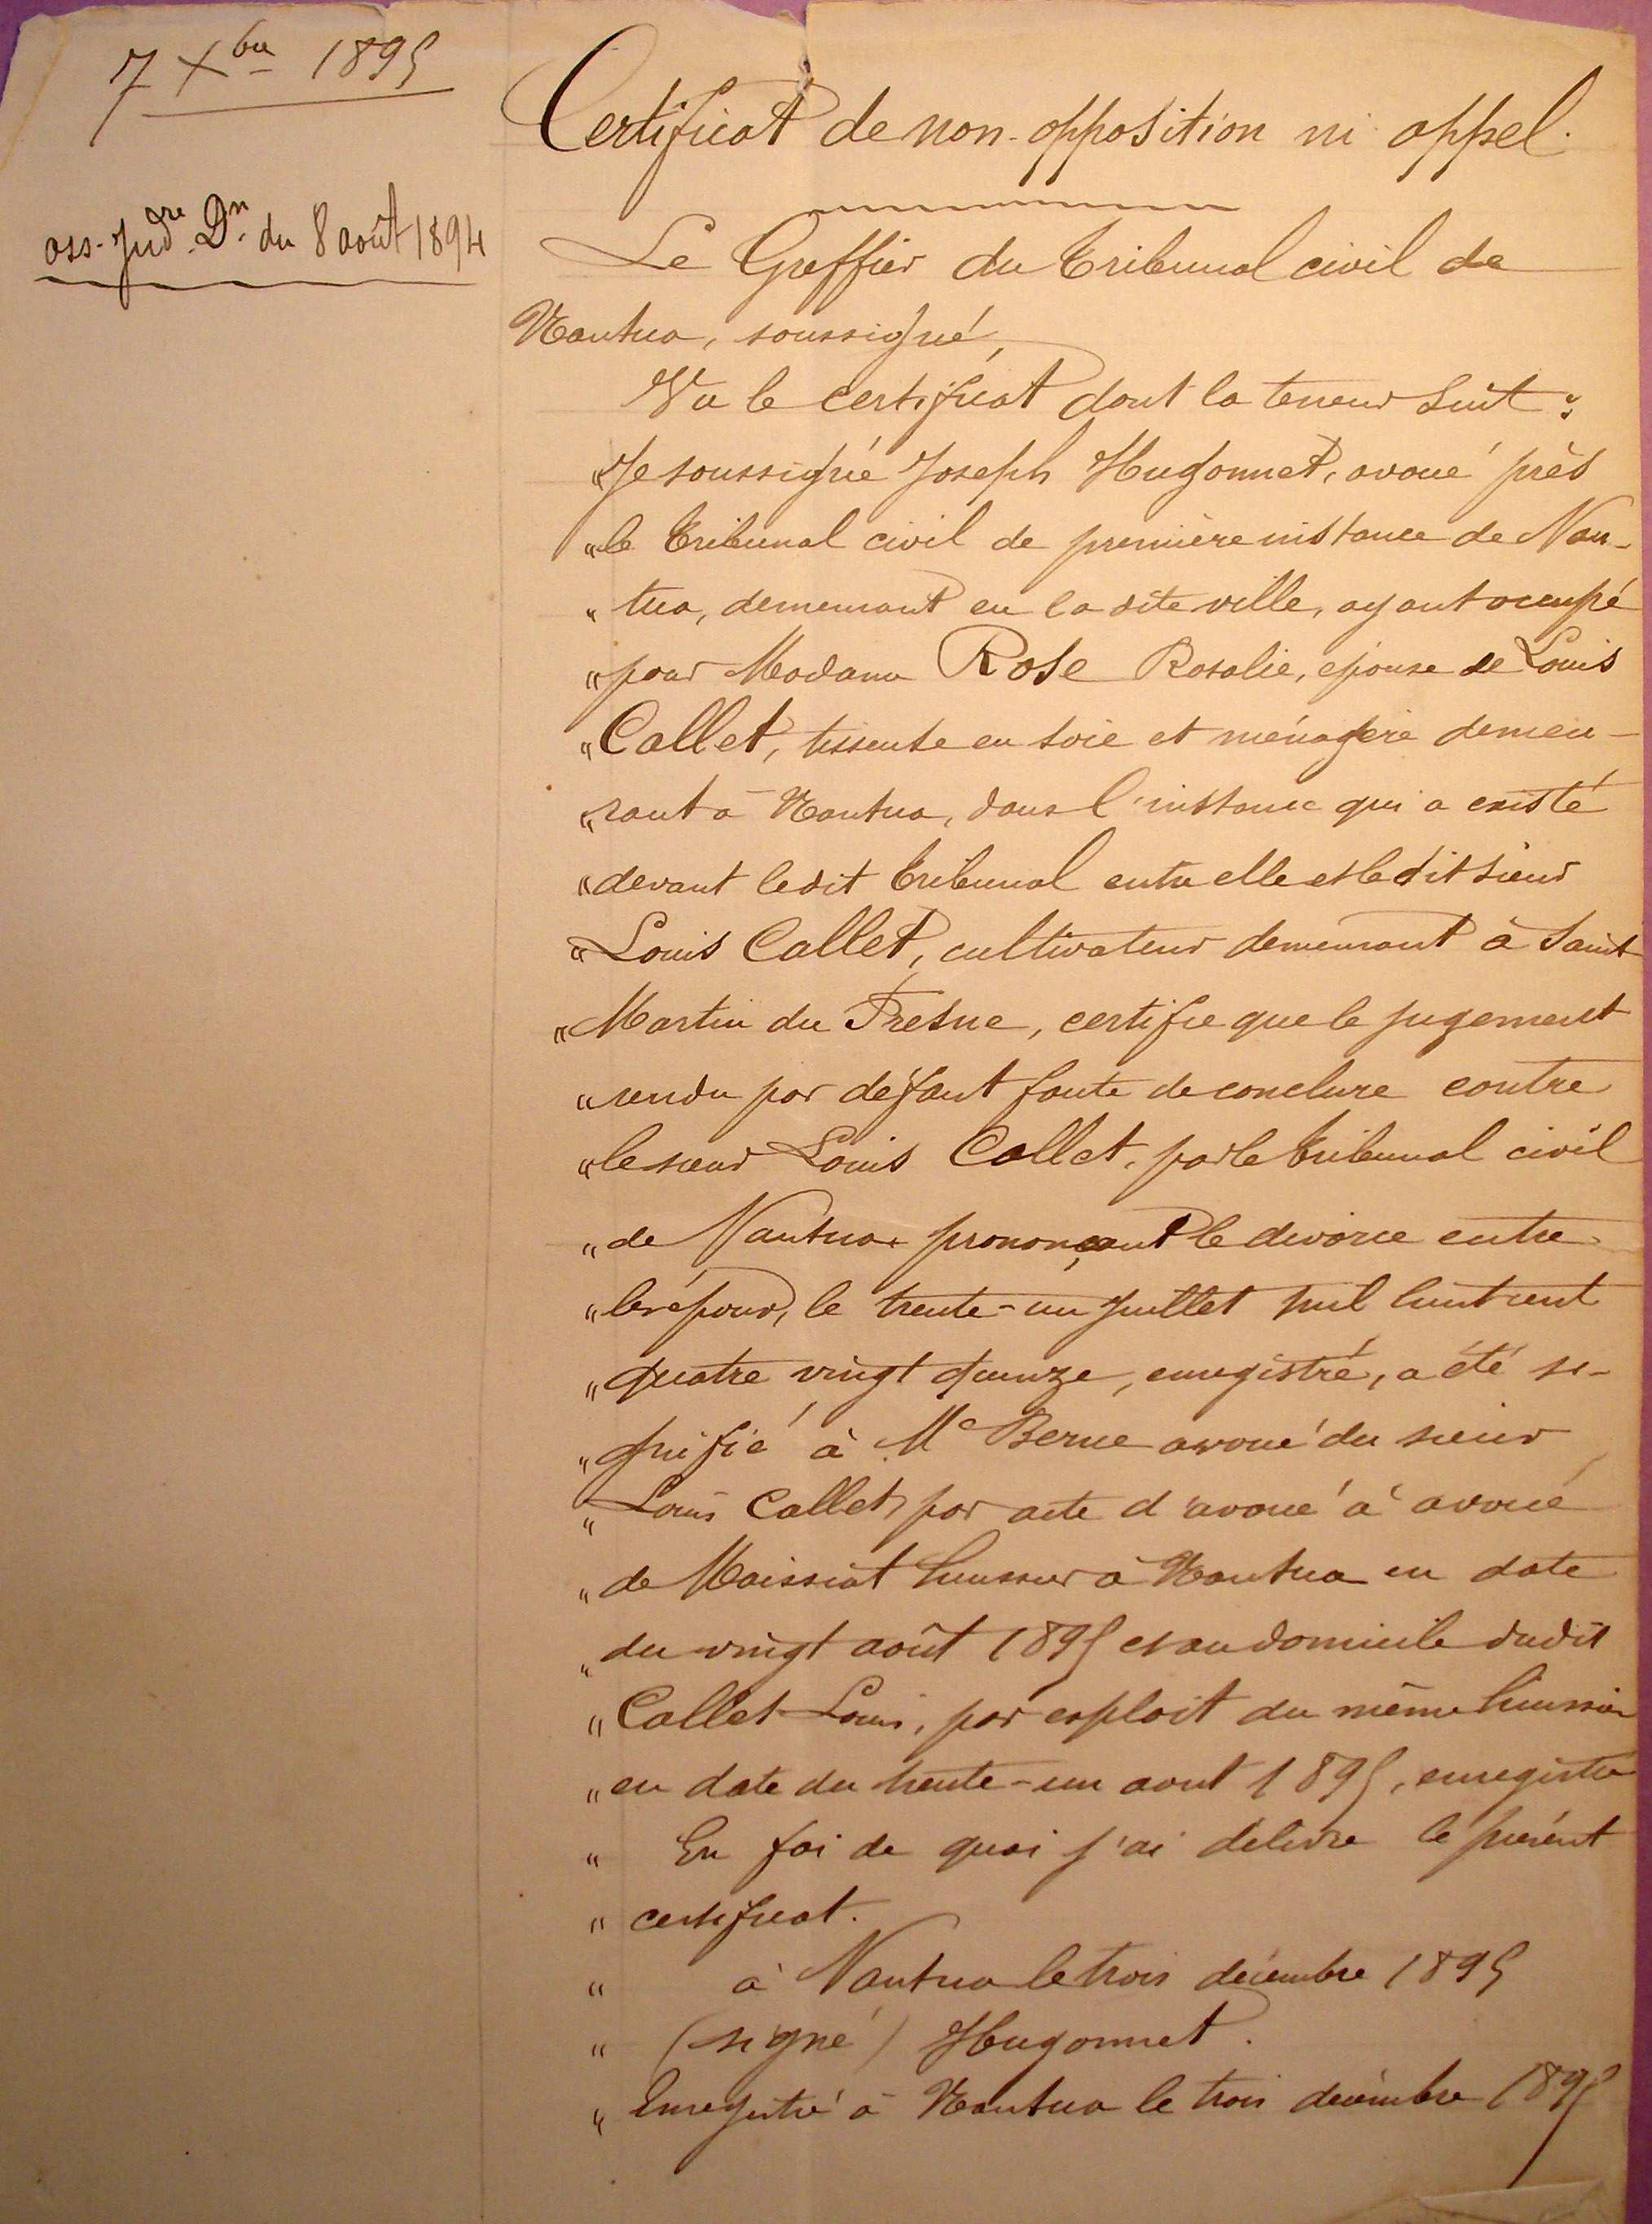 7 Xbre 1895
ass. judre Dn. du 8 août 1894
Certificat de non-opposition ni appel.
Le Greffier du Tribunal civil de
Nantua, soussigné,
Vu le certificat dont la teneur suit :
"Je soussigné Joseph Hugonnet, avoué près
"le Tribunal civil de première instance de Nan-
"tua, demeurant en la dite ville, ayant occupé
"pour Madame Rose Rosalie, épouse de Louis
"Callet, tisseuse en soie et ménagère demeu-
"rant à Nantua, dans l'instance qui a existé
"devant ledit Tribunal entre elle et le dit sieur
"Louis Callet, cultivateur demeurant à Saint
"Martin du Fresne, certifie que le jugement
"rendu par défaut faute de conclure contre
"le sieur Louis Callet, par le Tribunal civil
"de Nantua prononçant le divorce entre
"les époux, le trente-un juillet mil huit cent
"quatre vingt quinze, enregistré, a été si-
"gnifié à Me Berne avoué du sieur
"Louis Callet, par acte d'avoué à avoué
"de Maissiat huissier à Nantua en date
"du vingt août 1895 et au domicile dudit
"Callet Louis, par exploit du même huissier
"en date du trente-un aout 1895, enregistré
" En foi de quoi j'ai délivré le présent
"certificat.
" à Nantua le trois décembre 1895
" (signé) Hugonnet.
"Enregistré à Nantua le trois décembre 1895